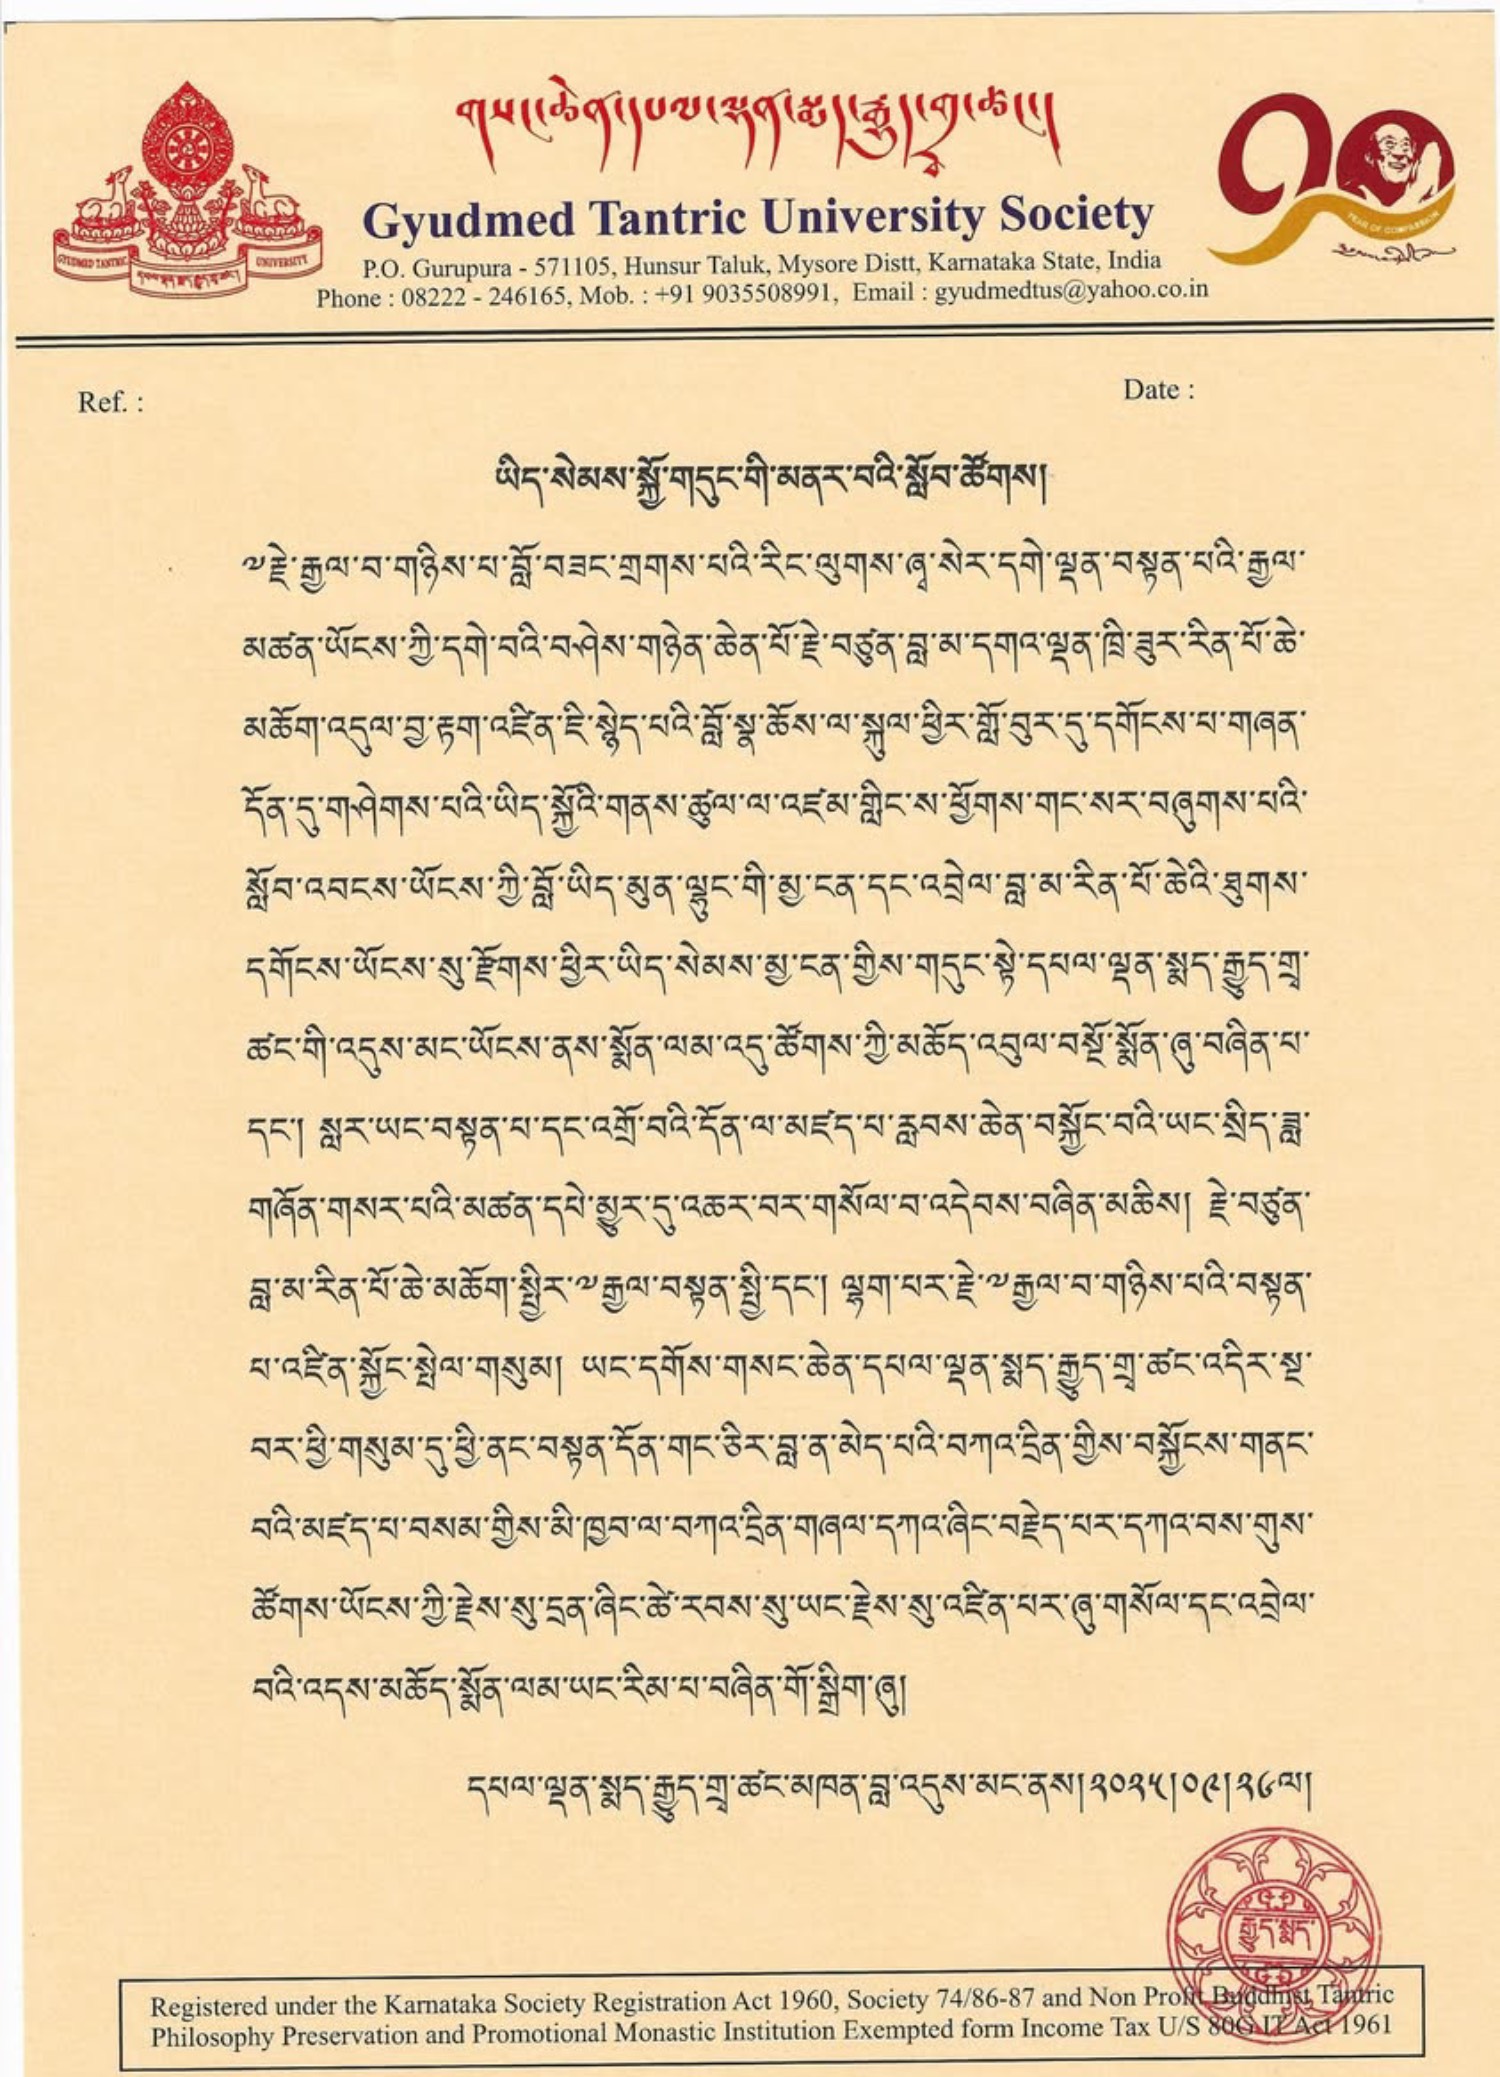 གསང་ཆེན་དཔལ་ལྡན་སྨད་རྒྱུད་གྲྭ་ཚང་།
Gyudmed Tantric University Society
P.O. Gurupura - 571105, Hunsur Taluk, Mysore Distt, Karnataka State, India
Phone : 08222 - 246165, Mob. : +91 9035508991, Email : gyudmedtus@yahoo.co.in
GYUDMED TANTRIC
UNIVERSITY
YEAR OF COMPASSION
Ref. :
Date :
ཡིད་སེམས་སྐྱོ་གདུང་གི་མནར་བའི་སློབ་ཚོགས།
༧རྗེ་རྒྱལ་བ་གཉིས་པ་བློ་བཟང་གྲགས་པའི་རིང་ལུགས་ཞྭ་སེར་དགེ་ལྡན་བསྟན་པའི་རྒྱལ་
མཚན་ཡོངས་ཀྱི་དགེ་བའི་བཤེས་གཉེན་ཆེན་པོ་རྗེ་བཙུན་བླ་མ་དགའ་ལྡན་ཁྲི་ཟུར་རིན་པོ་ཆེ་
མཆོག་འདུལ་བྱ་རྟག་འཛིན་ཇི་སྙེད་པའི་བློ་སྣ་ཆོས་ལ་སྐུལ་ཕྱིར་གློ་བུར་དུ་དགོངས་པ་གཞན་
དོན་དུ་གཤེགས་པའི་ཡིད་སྐྱོའི་གནས་ཚུལ་ལ་འཛམ་གླིང་ས་ཕྱོགས་གང་སར་བཞུགས་པའི་
སློབ་འབངས་ཡོངས་ཀྱི་བློ་ཡིད་མུན་ལྷུང་གི་མྱ་ངན་དང་འབྲེལ་བླ་མ་རིན་པོ་ཆེའི་ཐུགས་
དགོངས་ཡོངས་སུ་རྫོགས་ཕྱིར་ཡིད་སེམས་མྱ་ངན་གྱིས་གདུང་སྟེ་དཔལ་ལྡན་སྨད་རྒྱུད་གྲྭ་
ཚང་གི་འདུས་མང་ཡོངས་ནས་སྨོན་ལམ་འདུ་ཚོགས་ཀྱི་མཆོད་འབུལ་བསྔོ་སྨོན་ཞུ་བཞིན་པ་
དང་། སླར་ཡང་བསྟན་པ་དང་འགྲོ་བའི་དོན་ལ་མཛད་པ་རླབས་ཆེན་བསྐྱོང་བའི་ཡང་སྲིད་ཟླ་
གཞོན་གསར་པའི་མཚན་དཔེ་མྱུར་དུ་འཆར་བར་གསོལ་བ་འདེབས་བཞིན་མཆིས། རྗེ་བཙུན་
བླ་མ་རིན་པོ་ཆེ་མཆོག་སྤྱིར་༧རྒྱལ་བསྟན་སྤྱི་དང་། ལྷག་པར་རྗེ་༧རྒྱལ་བ་གཉིས་པའི་བསྟན་
པ་འཛིན་སྐྱོང་སྤེལ་གསུམ། ཡང་དགོས་གསང་ཆེན་དཔལ་ལྡན་སྨད་རྒྱུད་གྲྭ་ཚང་འདིར་སྔ་
བར་ཕྱི་གསུམ་དུ་ཕྱི་ནང་བསྟན་དོན་གང་ཅིར་བླ་ན་མེད་པའི་བཀའ་དྲིན་གྱིས་བསྐྱོངས་གནང་
བའི་མཛད་པ་བསམ་གྱིས་མི་ཁྱབ་ལ་བཀའ་དྲིན་གཞལ་དཀའ་ཞིང་བརྗེད་པར་དཀའ་བས་གུས་
ཚོགས་ཡོངས་ཀྱི་རྗེས་སུ་དྲན་ཞིང་ཚེ་རབས་སུ་ཡང་རྗེས་སུ་འཛིན་པར་ཞུ་གསོལ་དང་འབྲེལ་
བའི་འདས་མཆོད་སྨོན་ལམ་ཡང་རིམ་པ་བཞིན་གོ་སྒྲིག་ཞུ།
དཔལ་ལྡན་སྨད་རྒྱུད་གྲྭ་ཚང་མཁན་བླ་འདུས་མང་ནས།༢༠༢༥།༠༩།༢༦ལ།
རྒྱུད་སྨད་
Registered under the Karnataka Society Registration Act 1960, Society 74/86-87 and Non Profit Buddhist Tantric
Philosophy Preservation and Promotional Monastic Institution Exempted form Income Tax U/S 80G IT Act 1961